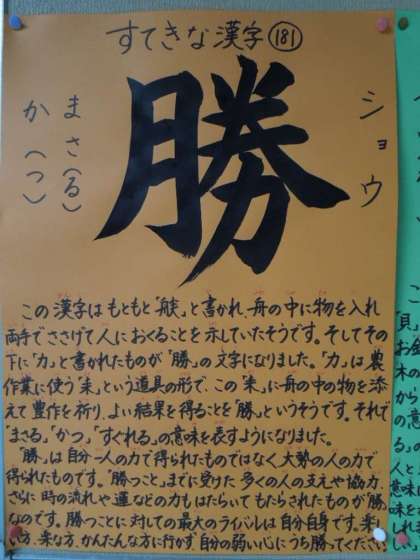 すてきな漢字 181
勝
ショウ
まさ(る)
か(つ)
この漢字はもともと「䑞」と書かれ、舟の中に物を入れ
両手でささげて人におくることを示していたそうです。そしてその
下に「力」と書かれたものが「勝」の文字になりました。「力」は農
作業に使う「耒」という道具の形で、この「耒」に舟の中の物を添
えて豊作を祈り、よい結果を得ることを「勝」というそうです。それで
「まさる」「かつ」「すぐれる」の意味を表すようになりました。
「勝」は自分一人の力で得られたものではなく、大勢の人の力で
得られたものです。「勝つこと」までに受けた多くの人の支えや協力、
さらに時の流れや運などの力もはたらいてもたらされたものが「勝」
なのです。勝つことに対しての最大のライバルは自分自身です。楽し
い方、楽な方、かんたんな方に行かず、自分の弱い心にうち勝ってください。